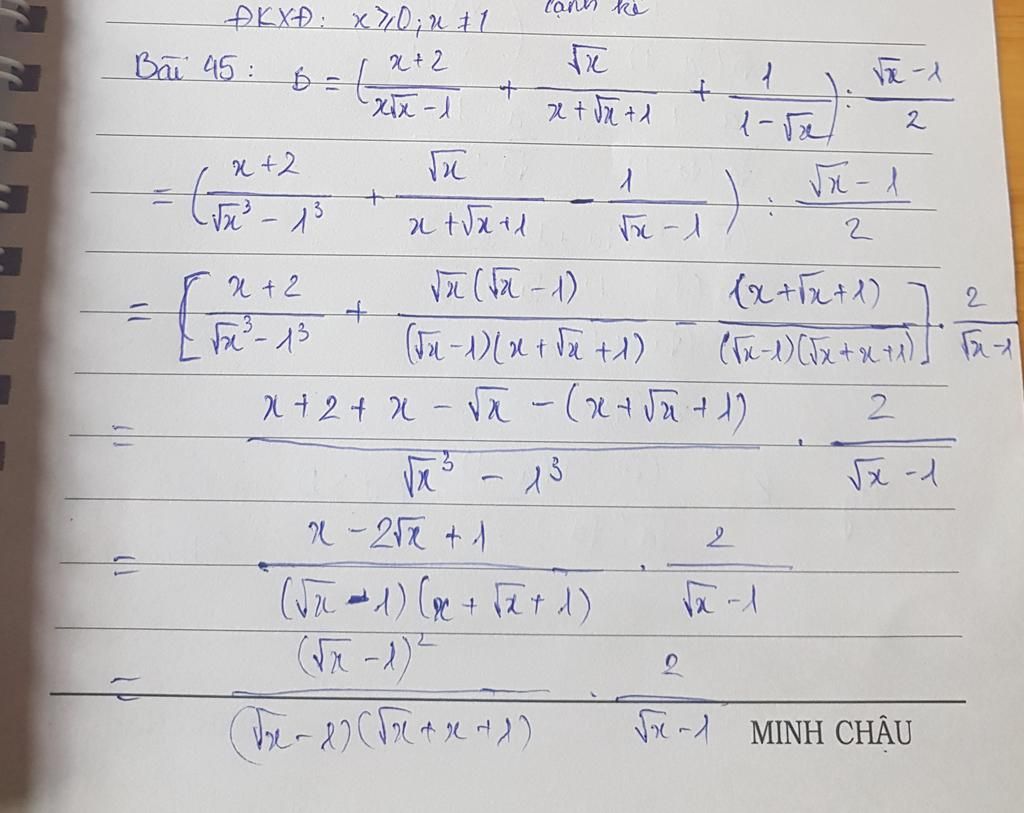 ĐKXĐ: x ≥ 0; x ≠ 1
Bài 45: B = (x+2/x√x −1 + √x/x+√x+1 + 1/1−√x) : √x −1/2
= (x+2/√x³ − 1³ + √x/x+√x+1 − 1/√x −1) : √x −1/2
= [x+2/√x³ − 1³ + √x(√x −1)/(√x−1)(x+√x+1) − 1(x+√x+1)/(√x−1)(√x+x+1)] . 2/√x−1
= x+2+x − √x − (x+√x+1)/√x³ − 1³ . 2/√x −1
= x − 2√x + 1/(√x − 1)(x+√x+1) . 2/√x −1
= (√x −1)²/(√x − 1)(√x+x+1) . 2/√x −1
MINH CHÂU